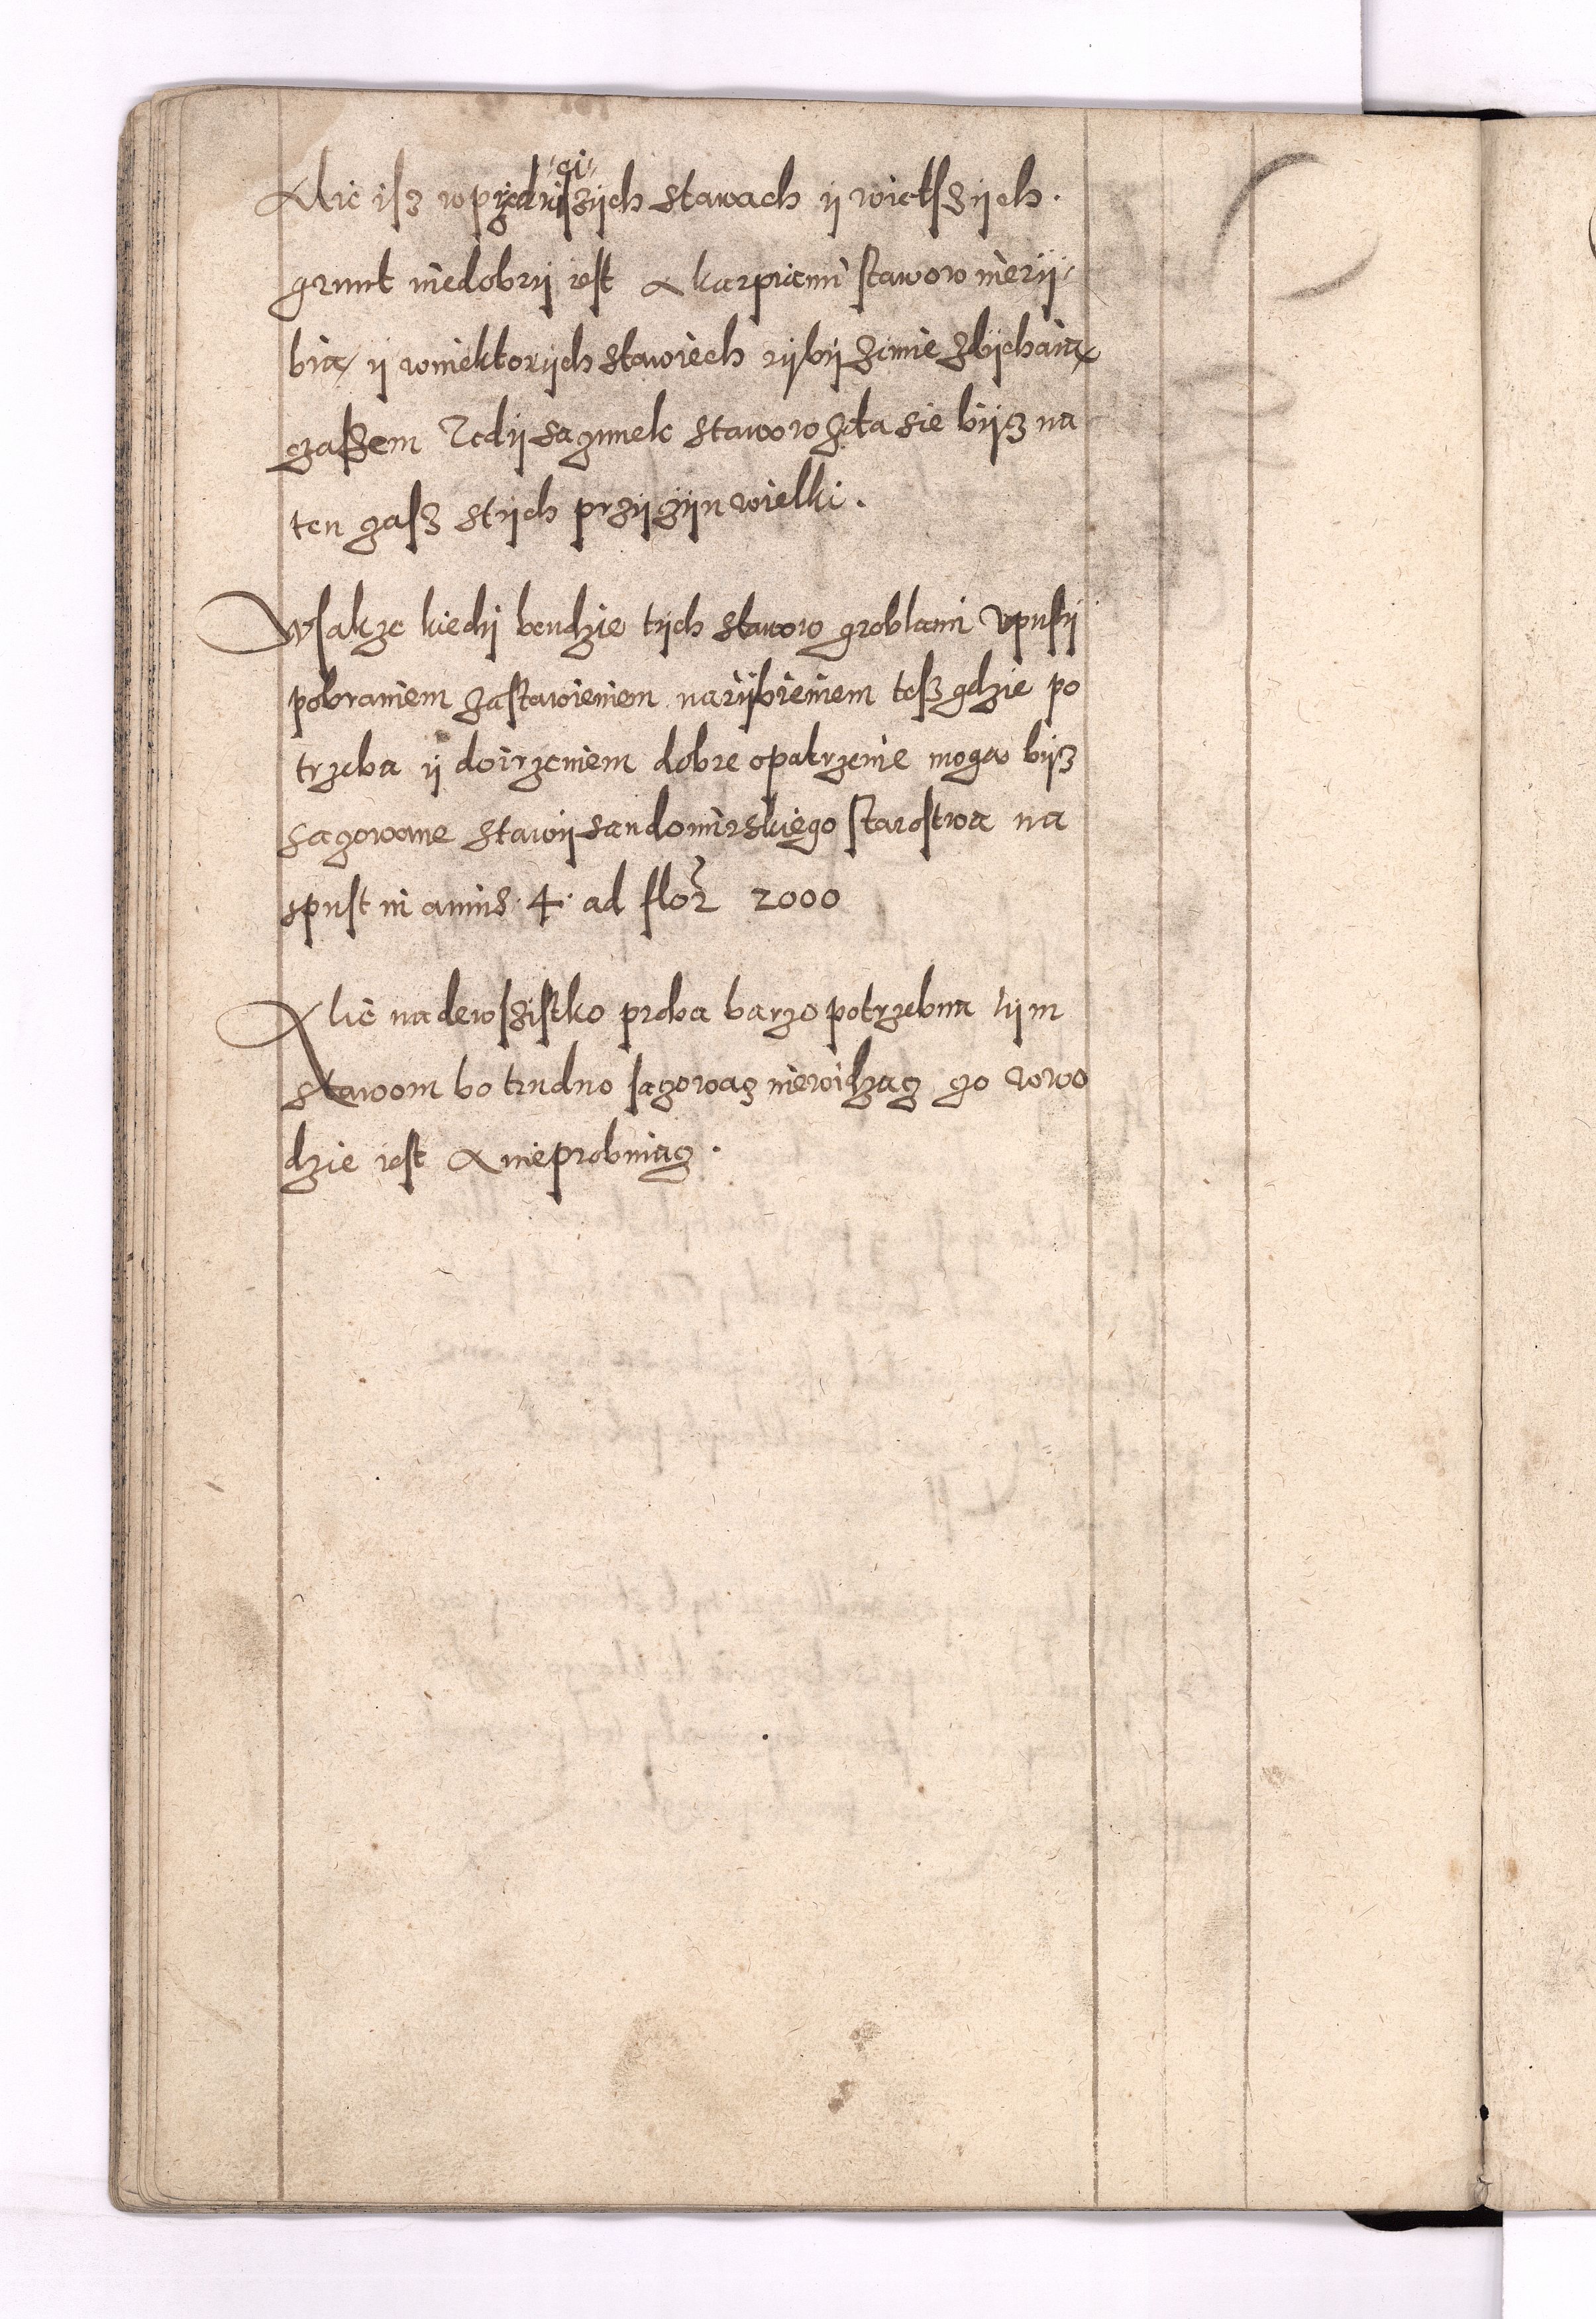 Alie isz wprzednieiszijch stawach ij wietszijch.
grunt niedobrij iest a karpiemi stawow nierij-
bia ij wniektorijch stawiech rijbij zimie zdijchaia
czasem Tedij sacunek stawow zda sie bijcz na
ten czasz stijch przijczijn wielki.
Wsakze kiedij bendzie tijch stawow groblami Vpustij
pobraniem zastawieniem narijbieniem tesz gdzie po
trzeba ij doirzeniem dobre opatrzenie moga bijcz
sacowane stawij sandomirskiego starostwa na
spust in annis 4 ad flor 2000
Alie nadewszistko proba barzo potrzebna tijm
stawom bo trudno sacowacz niewidzacz czo wwo
dzie iest a nieprobuiacz.